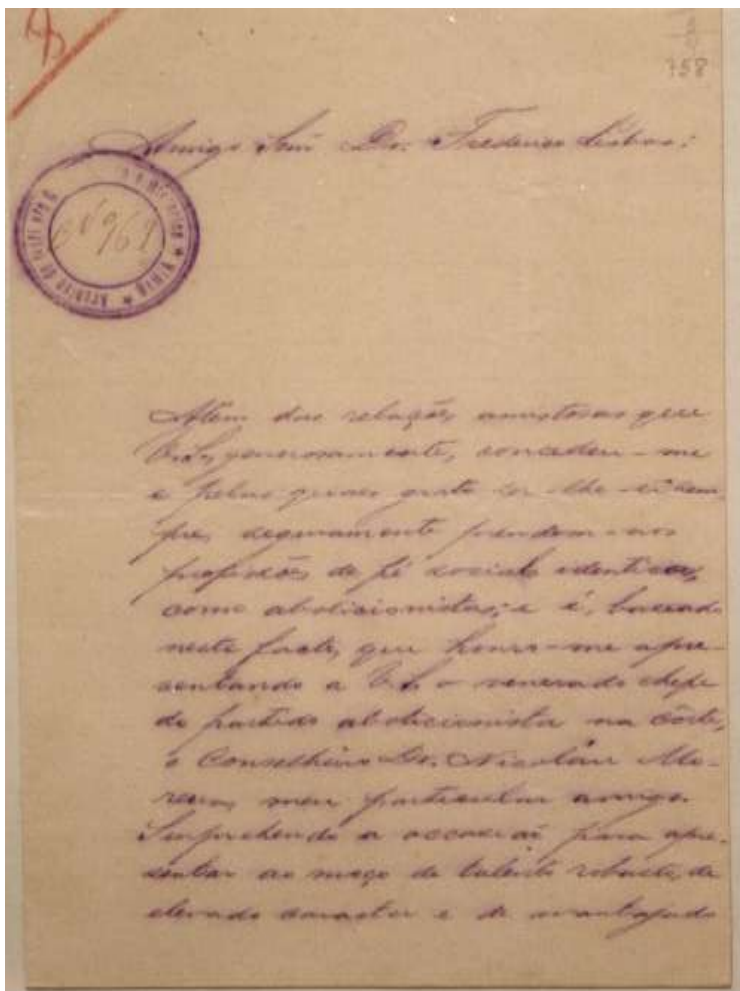 758
Amigo Snr. Dr. Frederico Lisboa:
Nº 961
Além das relações amistosas que
V. S., generosamente, concedeu-me
e pelas quaes grato sou-lhe sem
pre, seguramente prendem-nos
profissões de fé sociaes identicas,
como abolicionistas; e é, baseado
neste facto, que honro-me apre-
sentando a V. S. o venerado chefe
do partido abolicionista na côrte,
o Conselheiro Dr. Nicoláu Mo-
reira, meu particular amigo.
Surprehendo a occasião para apre-
sentar ao moço de talento robusto, de
elevado caracter e de avantajado